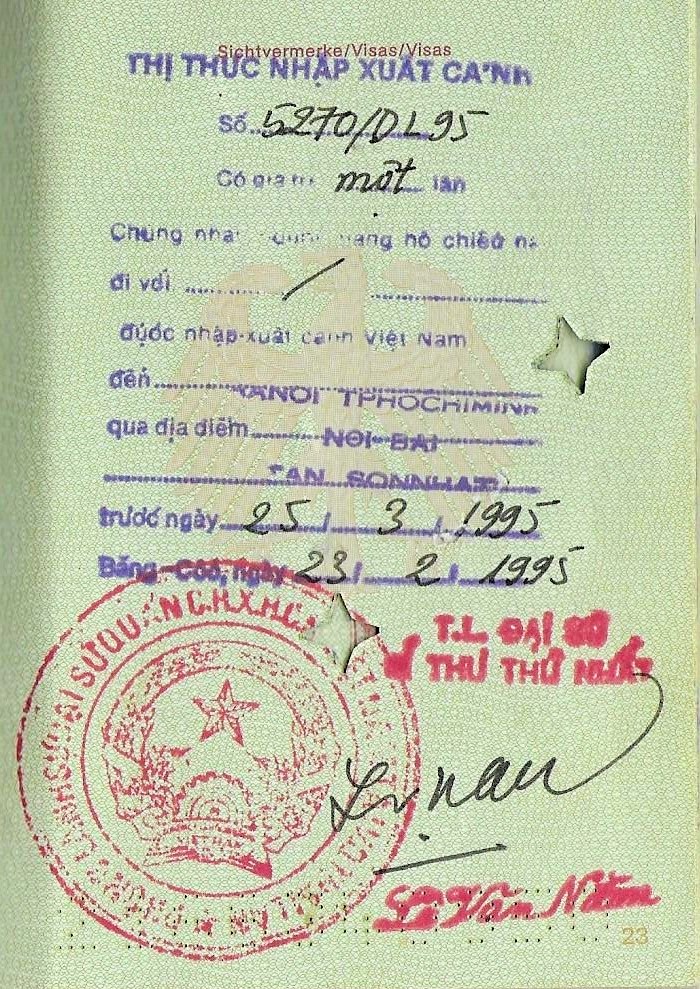 Sichtvermerke/Visas/Visas
THỊ THỰC NHẬP XUẤT CẢNH
Số 5270/DL95
Có giá trị một lần
Chứng nhận người mang hộ chiếu
đi với /
được nhập-xuất cảnh Việt Nam
đến HANOI TPHOCHIMINH
qua địa điểm NOI BAI
TAN SONNHAT
trước ngày 25 / 3 / 1995
Băng-Cốc, ngày 23 / 2 / 1995
T.L. ĐẠI SỨ
BÍ THƯ THỨ NHẤT
ĐẠI SỨ QUÁN C.H.X.H.C.N
Lê Văn Năm
23